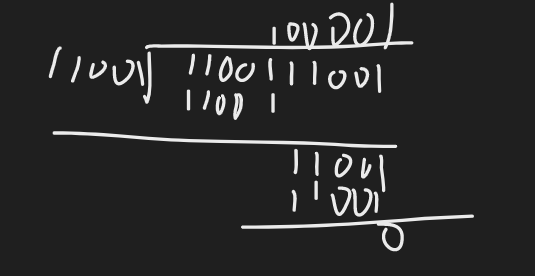 100001
11001 1100111001
11001
11001
11001
0